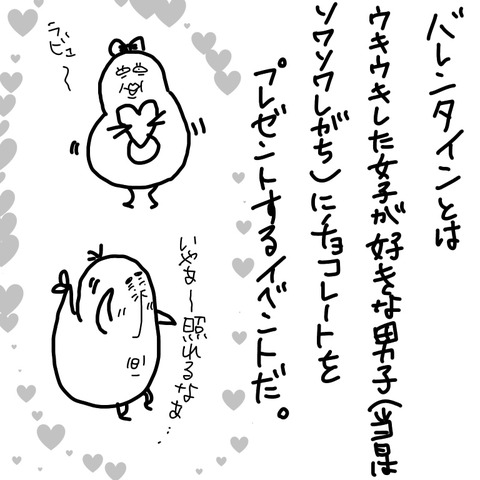 バレンタインとは
ウキウキした女子が好きな男子(当日は
ソワソワしがち)にチョコレートを
プレゼントするイベントだ。
ラビュ〜
いやぁ〜照れるなぁ…